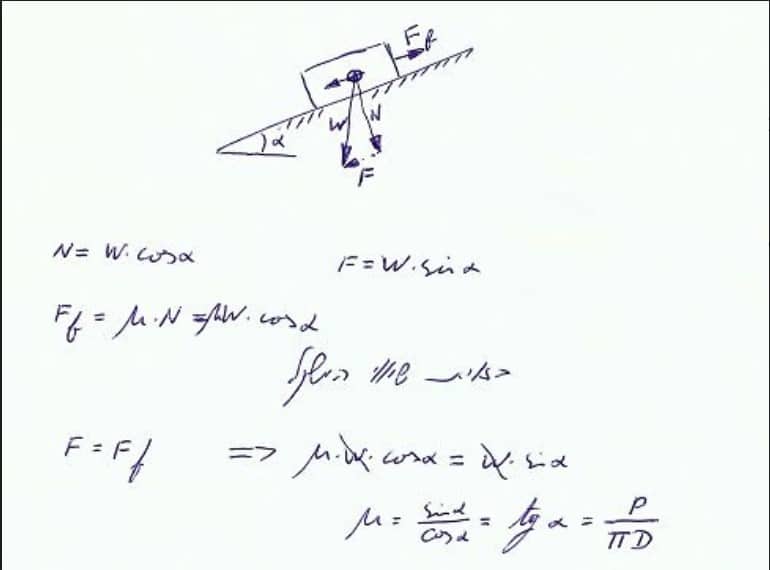 F_f
W N
α
F
N = W · cosα F = W · sinα
F_f = μ · N = μW · cosα
שיווי המשקל
F = F_f => μ · W · cosα = W · sinα
μ = sinα/cosα = tgα = P/πD